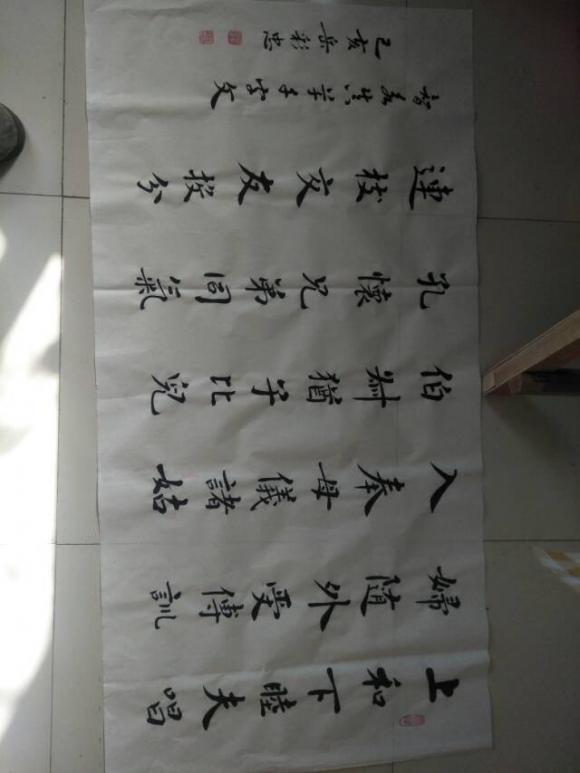 上和下睦夫唱
婦隨外受傅訓
入奉母儀諸姑
伯叔猶子比兒
孔懷兄弟同氣
連枝交友投分
智永真草千字文
己亥岳彩忠